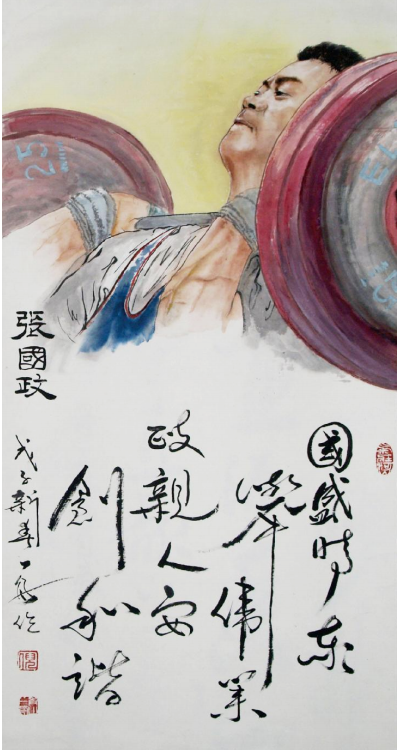 國盛時泰
舉偉業
政親人安
創和諧
張國政
戊子新春一作
25